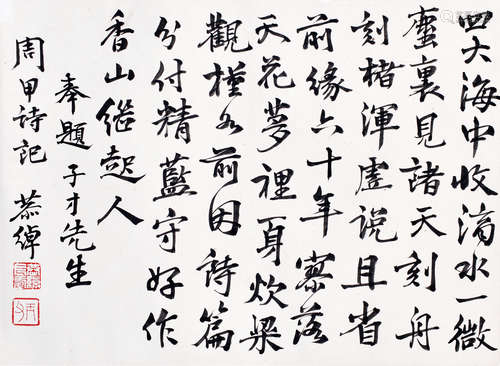 四大海中收滴水一微
塵裏見諸天刻舟
刻楮渾虛說且省
前緣六十年寥落
天花夢裡身炊粱
觀槿为前因詩篇
分付精藍守好作
香山繼起人
奉題子才先生
周甲詩記 慕韓